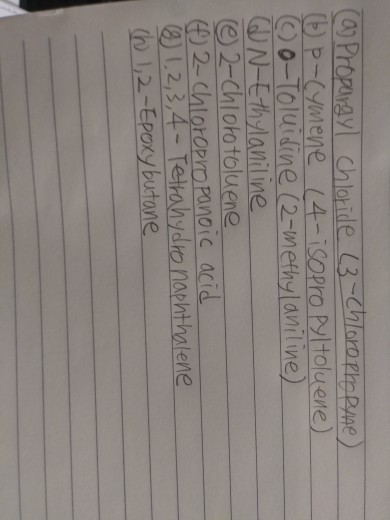 (a) Propargyl chloride (3-chloropropyne)
(b) p-cymene (4-isopropyltoluene)
(c) o-Toluidine (2-methylaniline)
(d) N-Ethylaniline
(e) 2-Chlorotoluene
(f) 2-chloropropanoic acid
(g) 1,2,3,4-Tetrahydronaphthalene
(h) 1,2-Epoxybutane